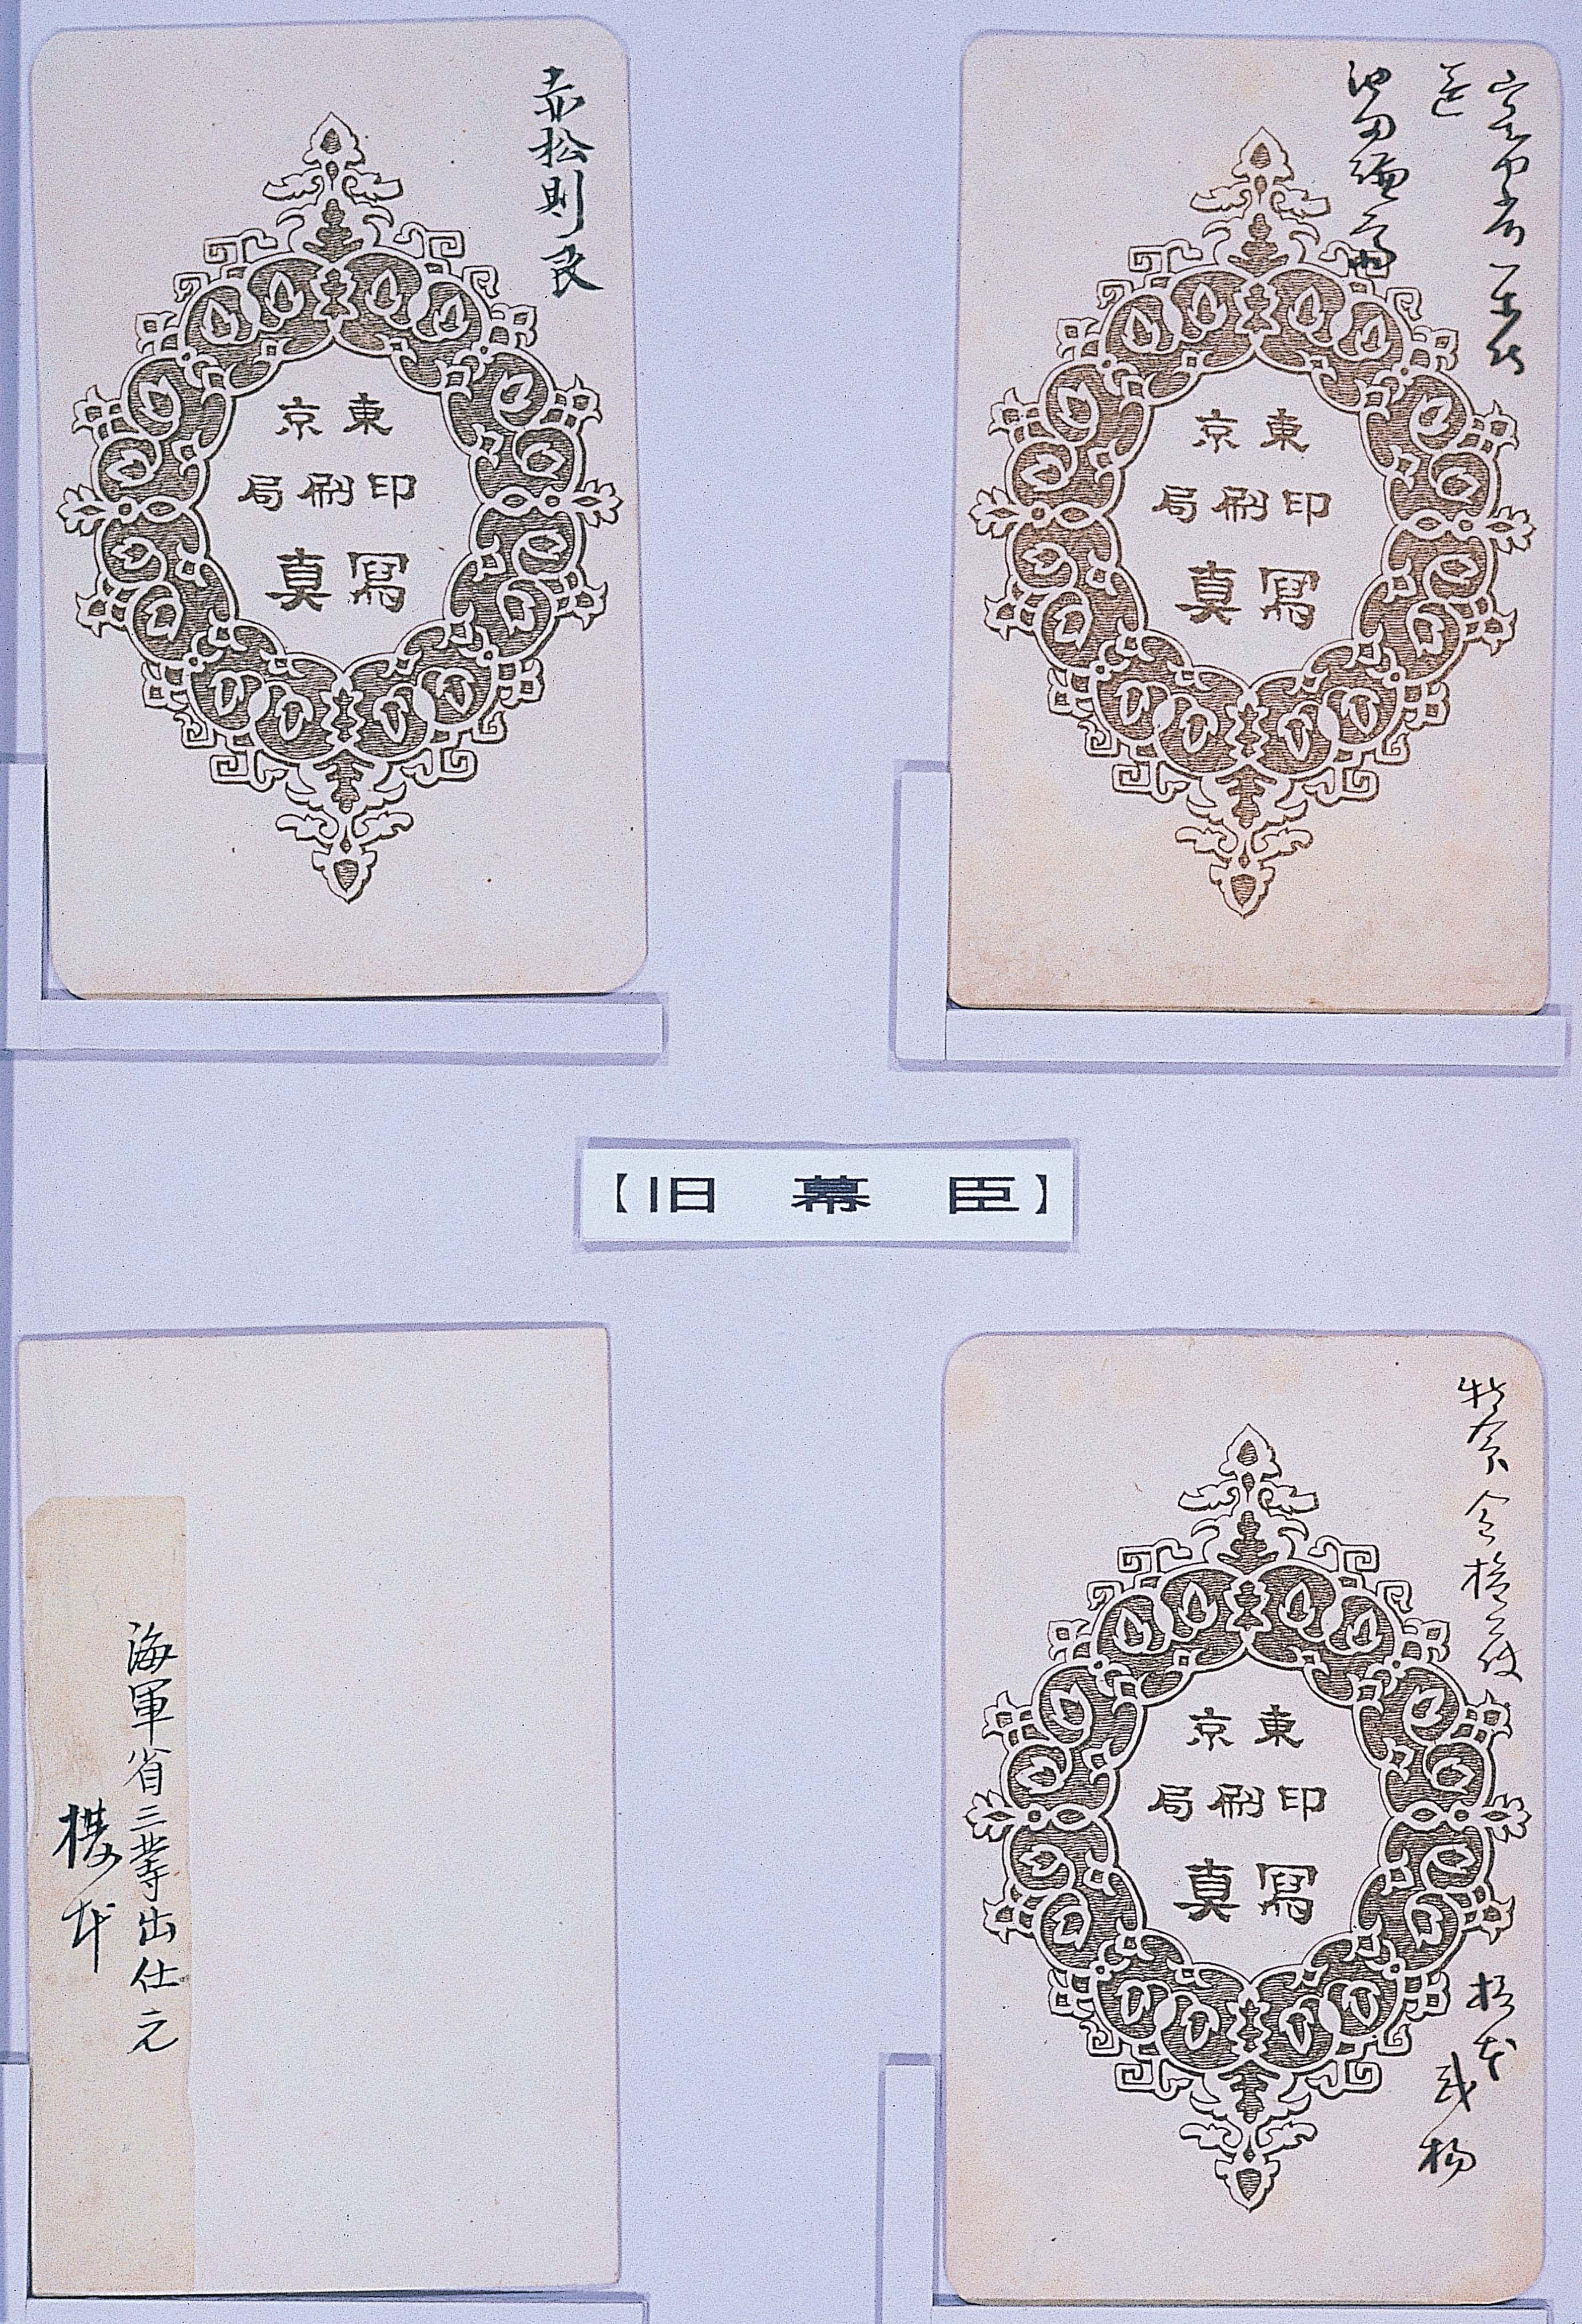 赤松則良
東京
印刷局
寫真
東京
印刷局
寫真
【旧 幕 臣】
海軍省三等出仕元
榎本
特命全権公使
榎本
武揚
東京
印刷局
寫真